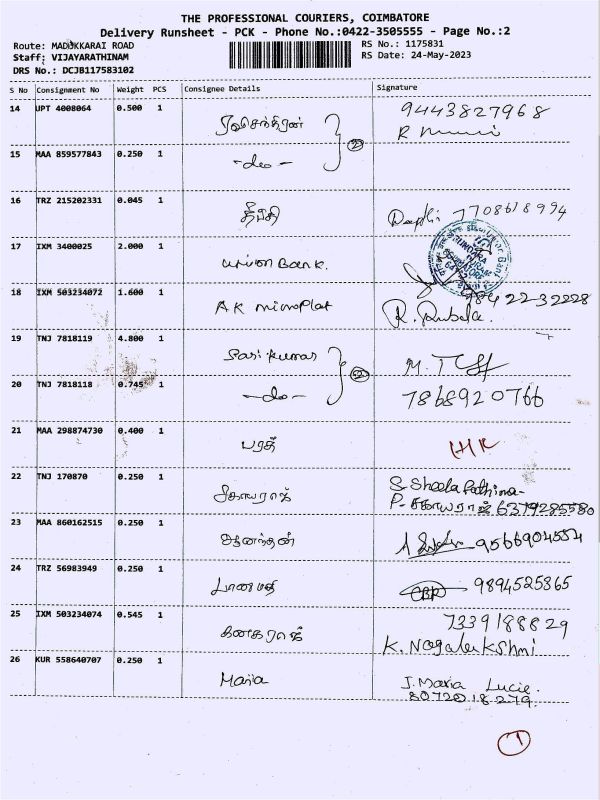 THE PROFESSIONAL COURIERS, COIMBATORE
Delivery Runsheet - PCK - Phone No.:0422-3505555 - Page No.:2
Route: MADUKKARAI ROAD RS No.: 1175831
Staff: VIJAYARATHINAM RS Date: 24-May-2023
DRS No.: DCJB117583102
S No Consignment No Weight PCS Consignee Details Signature
14 UPT 4008064 0.500 1 9443827968
2
15 MAA 859577843 0.250 1 -do-
16 TRZ 215202331 0.045 1 தீப்தி Deepthi 7708618994
17 IXM 3400025 2.000 1 Union Bank.
18 IXM 503234072 1.600 1 AK microplat 984 22-32228
R.
19 TNJ 7818119 4.800 1 Sasikumar M.T
20 TNJ 7818118 0.745 1 -do- 7868920766
21 MAA 298874730 0.400 1 பரத்
22 TNJ 170870 0.250 1 S. Sheela Pathima
P. சகாயராஜ் 6379285580
23 MAA 860162515 0.250 1 ஆனந்தன் 9566904554
24 TRZ 56983949 0.250 1 பானுமதி 9894525865
25 IXM 503234074 0.545 1 கனகராஜ் 7339188829
K. Nagalakshmi
26 KUR 558640707 0.250 1 Maria J. Maria Lucie.
8072018279